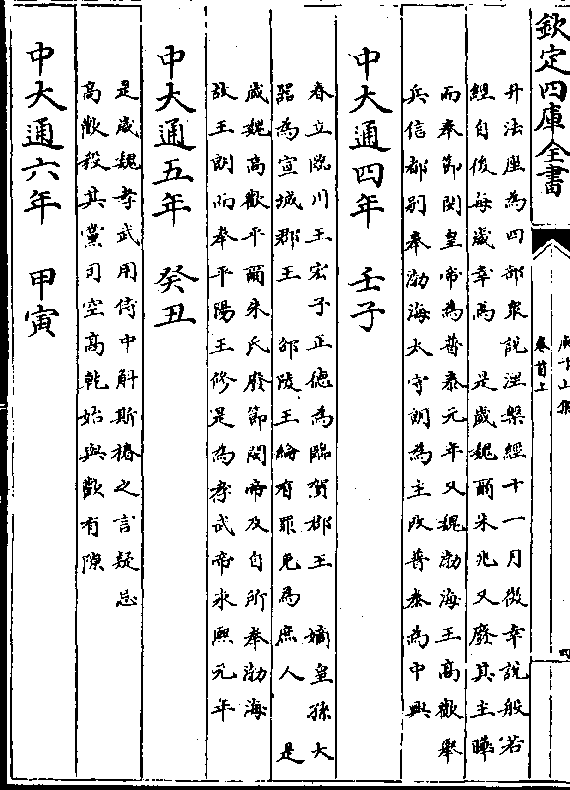 欽定四庫全書
卷首上
四
升法座為四部衆說涅槃經十一月復幸說般若
經自後每歲幸焉 是歲魏爾朱兆又廢其主曄
而奉節閔皇帝為普泰元年又魏渤海王高歡舉
兵信都别奉渤海太守朗為主改普泰為中興
中大通四年 壬子
春立臨川王宏子正德為臨賀郡王 嫡皇孫大
器為宣城郡王 邵陵王綸有罪免為庶人 是
歲魏高歡平爾朱氏廢節閔帝及自所奉渤海
故王朗而奉平陽王修是為孝武帝永熙元年
中大通五年 癸丑
是歲魏孝武用侍中斛斯椿之言疑忌
高歡殺其黨司空高乾始與歡有隙
中大通六年 甲寅